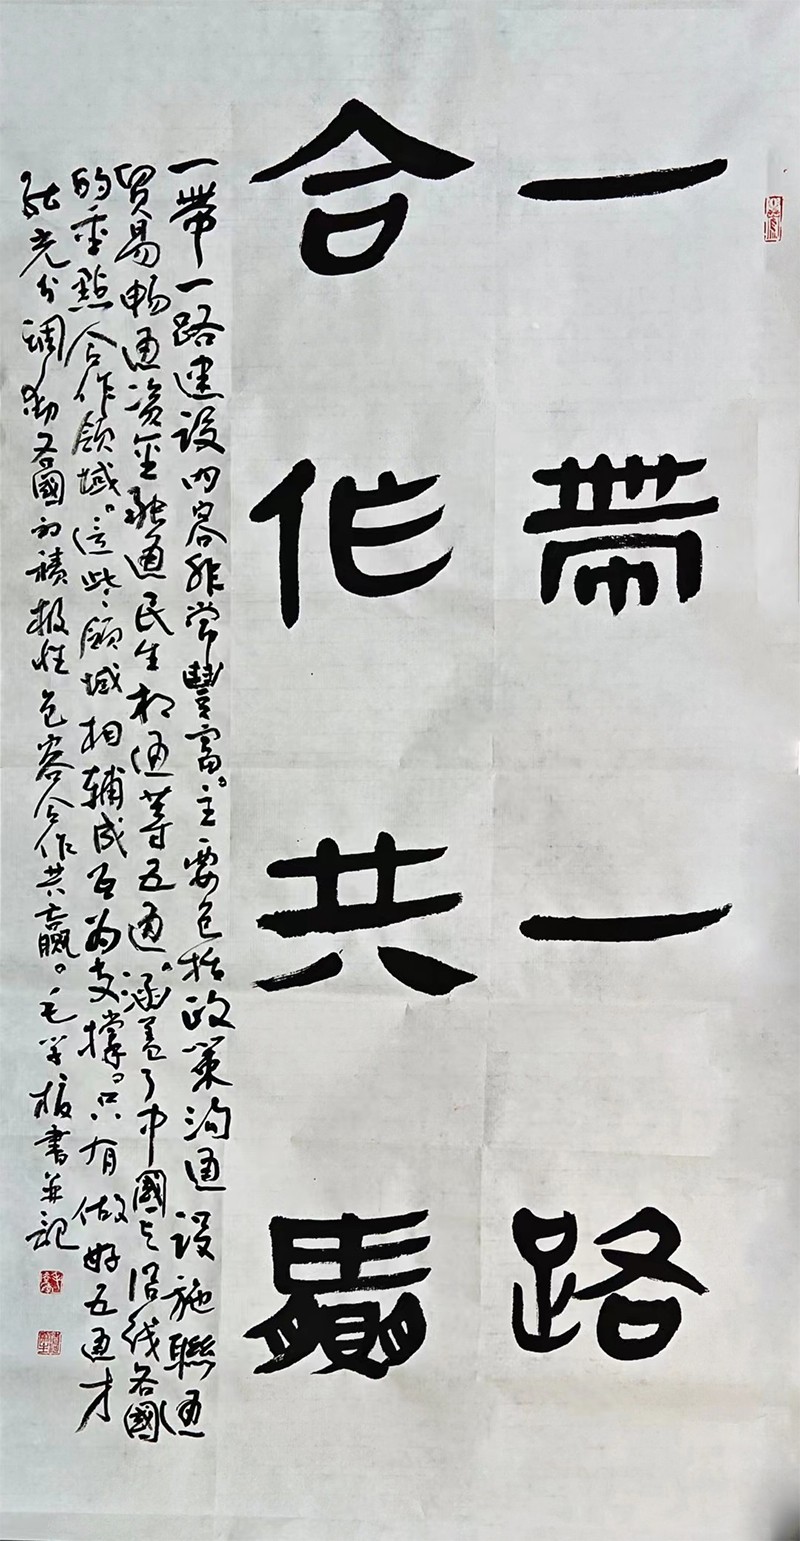 一帶一路
合作共贏
一帶一路建设内容非常豐富。主要包括政策沟通设施聯通
贸易畅通资金融通民生相通等五通。涵盖了中國与沿线各國
的重點合作领域。這些领域相辅成互为支撑。只有做好五通才
能充分调動各國的積极性包容合作共贏。毛学書並記